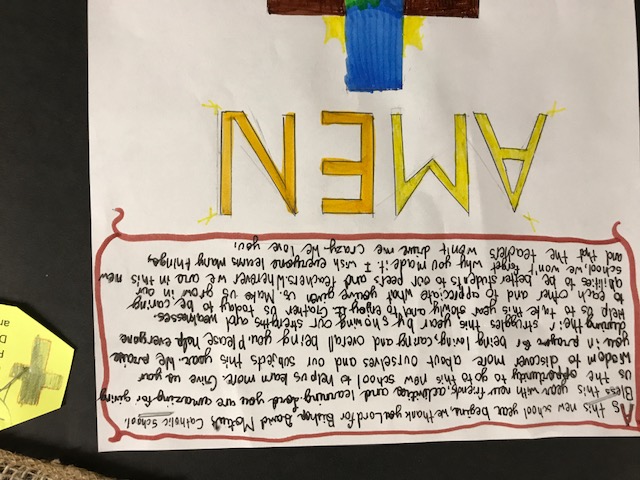 As this new school year begins, we thank you Lord for Bishop David Motiuk Catholic School.
Bless this year with new friends, activities and learning. Lord you are amazing for giving
us the opportunity to go to this new school to help us learn more. Give us your
wisdom to discover more about ourselves and our subjects this year. We praise
you in prayer for being loving, caring and overall being you! Please help everyone
during their struggles this year by showing our strengths and weaknesses.
Help us to take this year slowly and to enjoy it. God, Help Us today to be caring
to each other and to appreciate what you've given us. Make us grow in our
abilities to be better students to our peers and teachers. Wherever we are in this new
school, we won't forget why you made it. I wish everyone learns many things,
and that the teachers won't drive me crazy. We love you,
AMEN